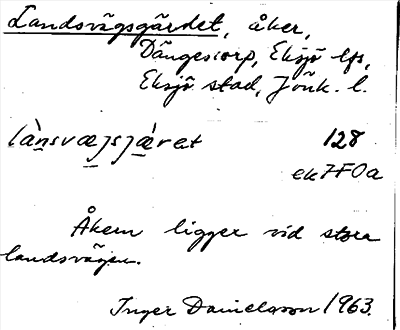 Landsvägsgärdet, åker,
Dängestorp, Eksjö lfs,
Eksjö stad, Jönk. l.
lànsvæjsjæ̀ret 128
ek 7F0a
Åkern ligger vid stora
landsvägen.
Inger Danielsson 1963.